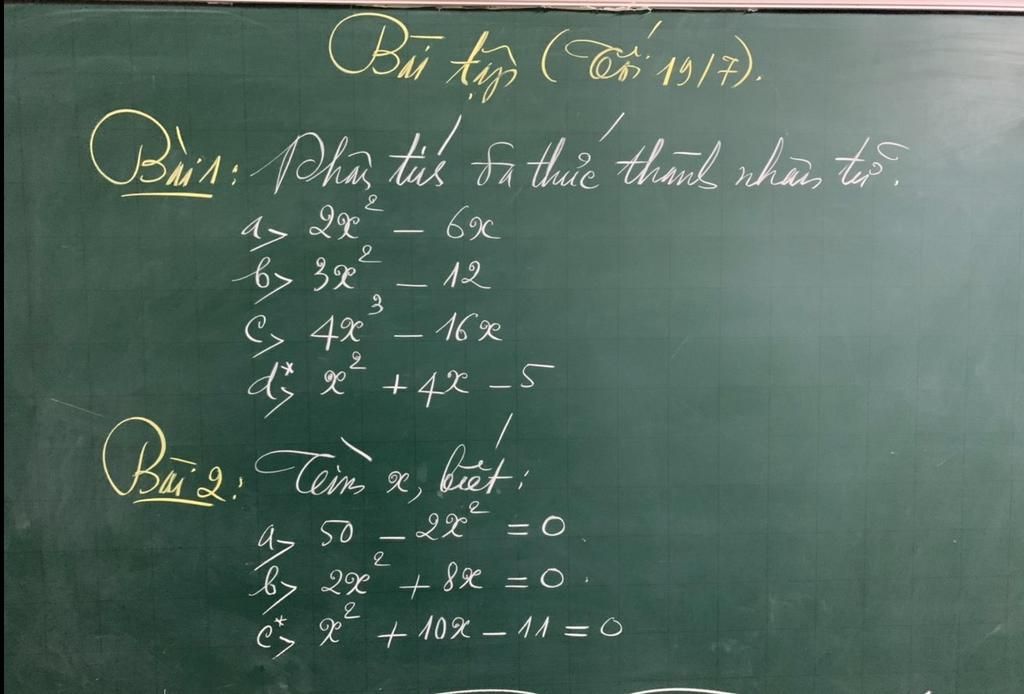 Bài tập (Tối 19/7).
Bài 1: Phân tích đa thức thành nhân tử.
a> 2x² - 6x
b> 3x² - 12
c> 4x³ - 16x
d*> x² + 4x - 5
Bài 2: Tìm x, biết:
a> 50 - 2x² = 0.
b> 2x² + 8x = 0.
c*> x² + 10x - 11 = 0